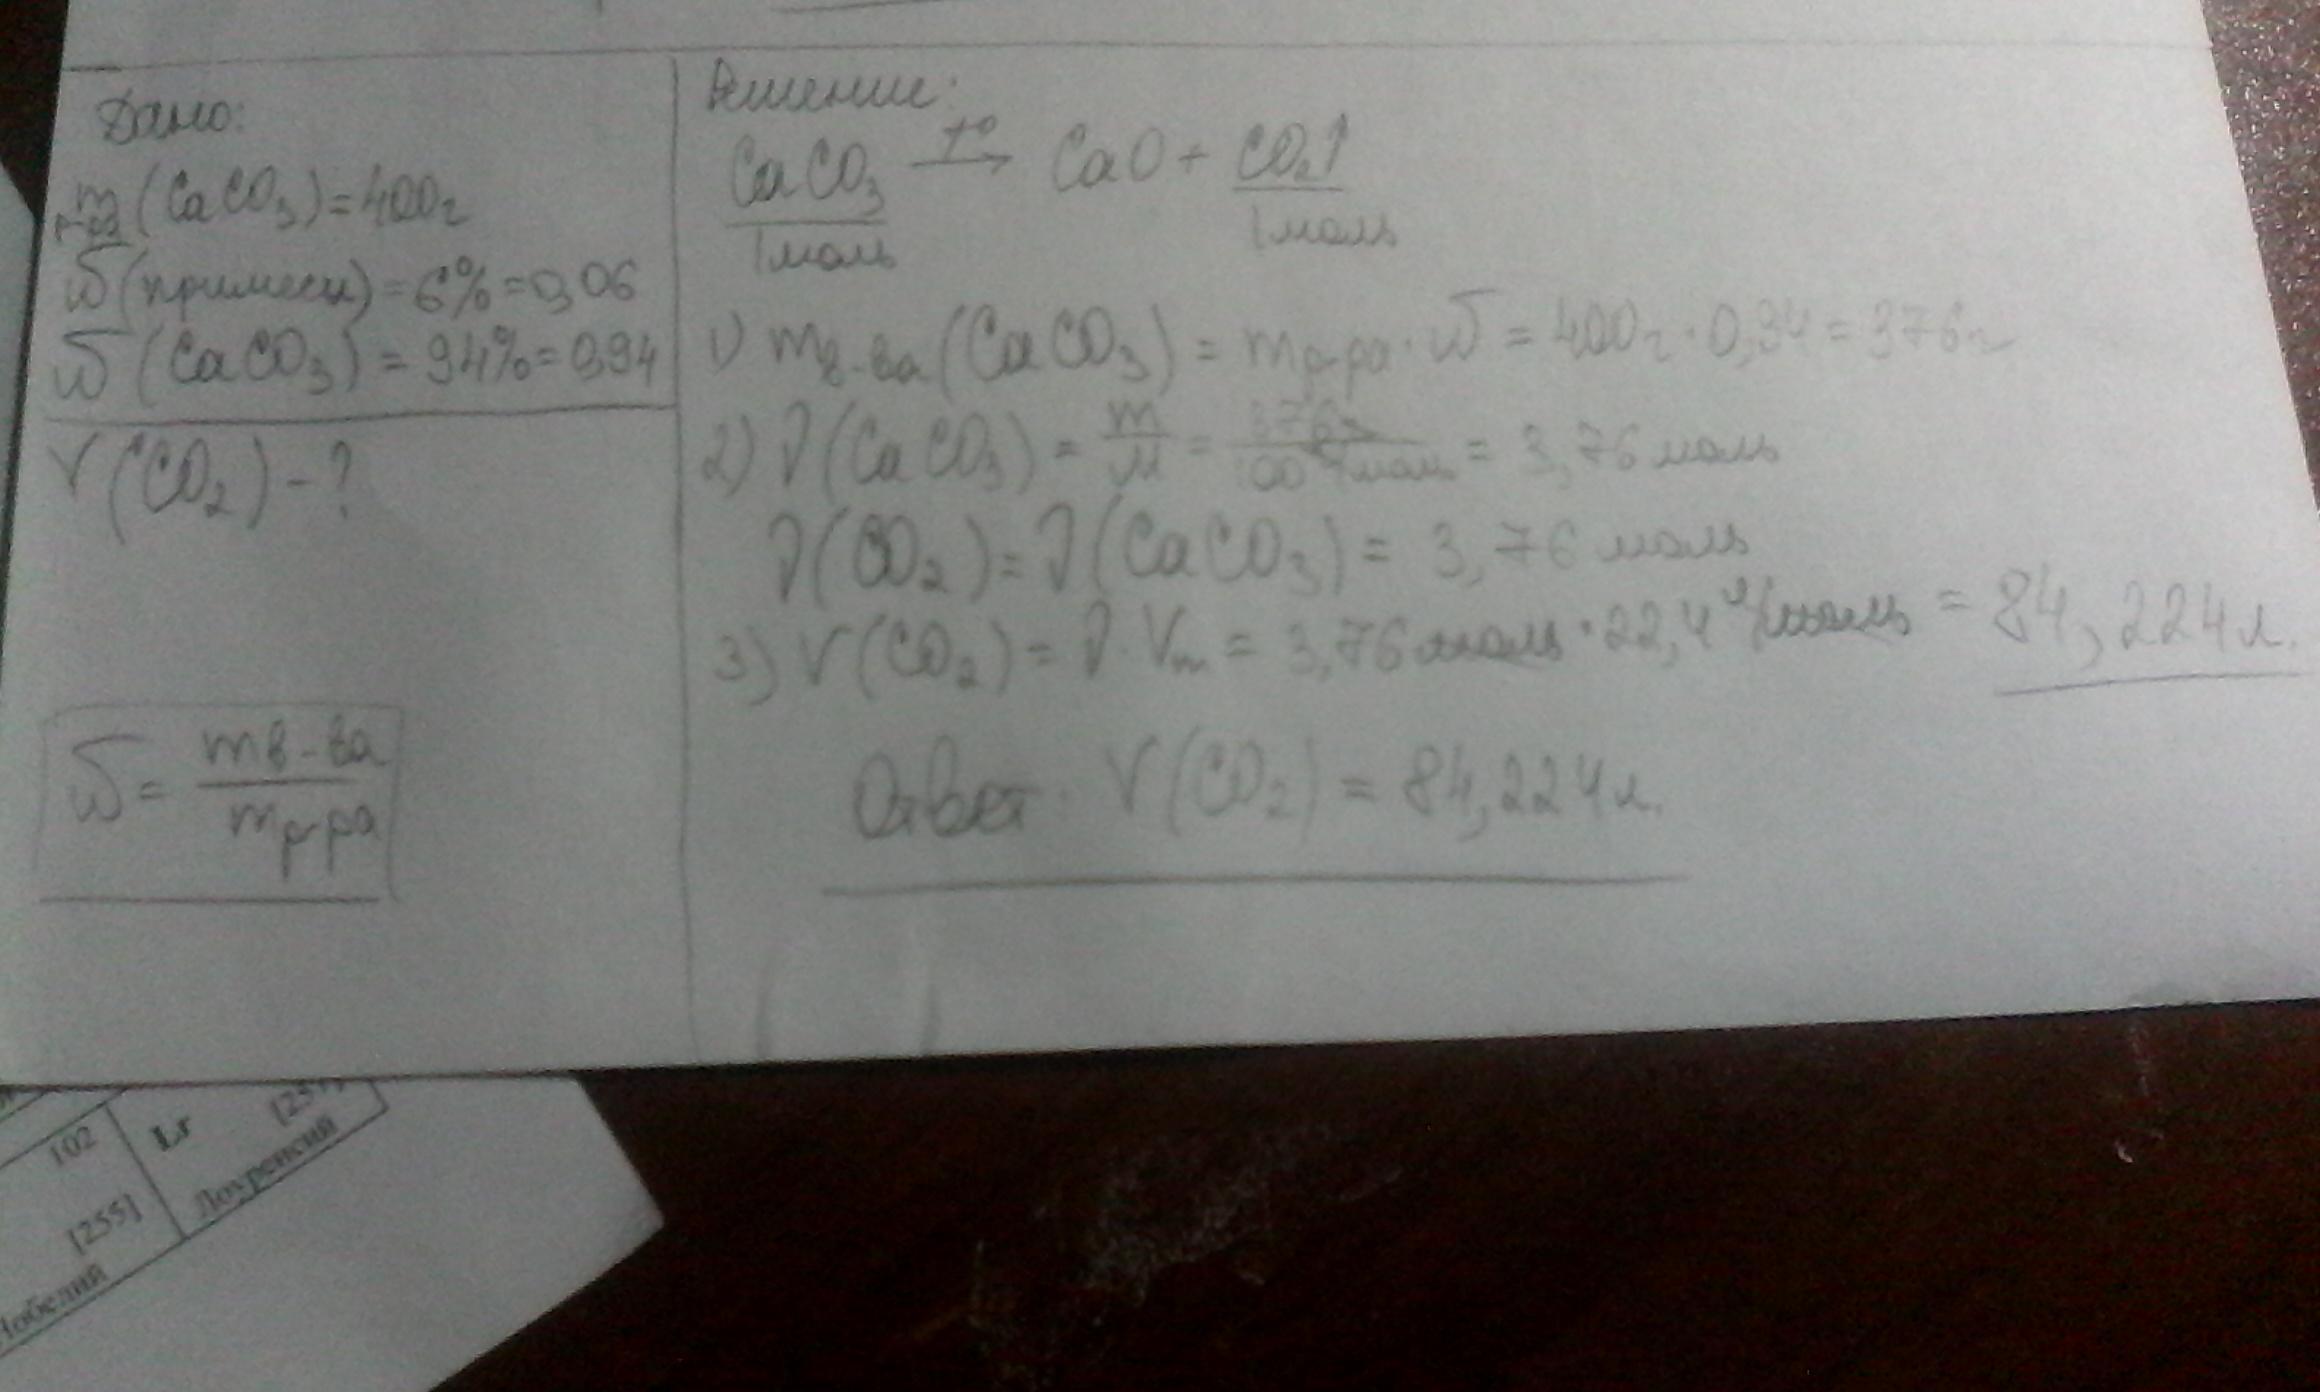 Дано:
m р-ра (CaCO₃) = 400г
ω (примеси) = 6% = 0,06
ω (CaCO₃) = 94% = 0,94
V (CO₂) - ?
ω = mв-ва / mр-ра
Решение:
CaCO₃ t°→ CaO + CO₂↑
1 моль 1 моль
1) mв-ва (CaCO₃) = mр-ра · ω = 400г · 0,94 = 376г
2) ν (CaCO₃) = m/M = 376г / 100 г/моль = 3,76 моль
ν (CO₂) = ν (CaCO₃) = 3,76 моль
3) V (CO₂) = ν · Vm = 3,76 моль · 22,4 л/моль = 84,224 л.
Ответ: V (CO₂) = 84,224 л.
102
[255]
Нобелий
Lr
[257]
Лоуренсий